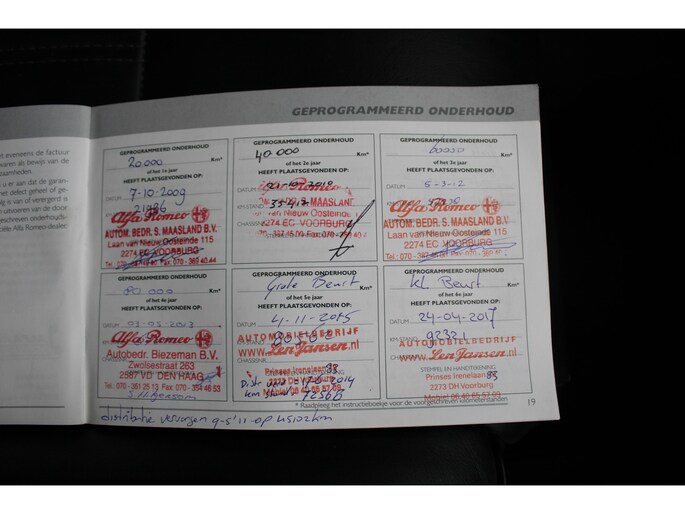 GEPROGRAMMEERD ONDERHOUD
t eveneens de factuur
waren als bewijs van de
zaamheden.
u er aan dat de garan-
defect geheel of ge-
g is van of verergerd is
n uitvoeren van de door
geschreven onderhouds-
iële Alfa Romeo-dealer.
GEPROGRAMMEERD ONDERHOUD
20.000 Km*
of het 1e jaar
HEEFT PLAATSGEVONDEN OP:
DATUM 7-10-2009
21986
Alfa Romeo
AUTOM. BEDR. S. MAASLAND B.V.
Laan van Nieuw Oosteinde 115
2274 EC VOORBURG
GEPROGRAMMEERD ONDERHOUD
40.000 Km*
of het 2e jaar
HEEFT PLAATSGEVONDEN OP:
DATUM
KM-STAND
MAASLAND
van Nieuw Oosteinde
2274 EC VOORBURG
GEPROGRAMMEERD ONDERHOUD
60000 Km*
of het 3e jaar
HEEFT PLAATSGEVONDEN OP:
DATUM 5-3-12
Alfa Romeo
AUTOM. BEDR. S. MAASLAND B.V.
Laan van Nieuw Oosteinde 115
2274 EC VOORBURG
GEPROGRAMMEERD ONDERHOUD
80 000 Km*
of het 4e jaar
HEEFT PLAATSGEVONDEN OP:
DATUM 03-05-2013
Alfa Romeo
Autobedr. Biezeman B.V.
Zwolsestraat 263
2587 VD DEN HAAG
Tel: 070 - 351 25 13 Fax: 070 - 354 48 53
GEPROGRAMMEERD ONDERHOUD
Grote Beurt Km*
of het 5e jaar
HEEFT PLAATSGEVONDEN OP:
DATUM 4-11-2015
AUTOMOBIELBEDRIJF
www.LenJansen.nl
Prinses Irenelaan 83
2273 DH Voorburg
GEPROGRAMMEERD ONDERHOUD
Kl Beurt Km*
of het 6e jaar
HEEFT PLAATSGEVONDEN OP:
DATUM 24-04-2017
KM-STAND 92321
AUTOMOBIELBEDRIJF
www.LenJansen.nl
STEMPEL EN HANDTEKENING
Prinses Irenelaan 83
2273 DH Voorburg
Mobiel 06 40 65 57 09
* Raadpleeg het instructieboekje voor de voorgeschreven kilometerstanden
19
distributie vervangen 9-5'11 op 45102km